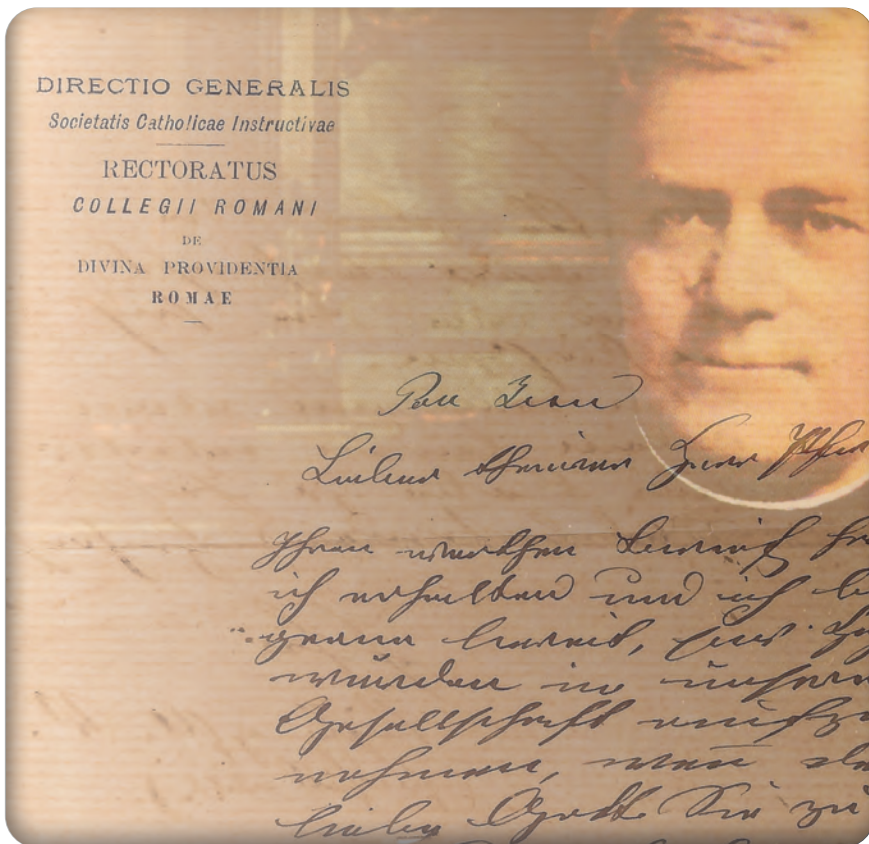 DIRECTIO GENERALIS
Societatis Catholicae Instructivae
RECTORATUS
COLLEGII ROMANI
DE
DIVINA PROVIDENTIA
ROMAE
Lieber theurer Herr
Ihren werthen
ich erhalten und ich
gerne bereit,
würden in unsere
Gesellschaft aufzu
nehmen, wenn
liebe Gott Sie zu